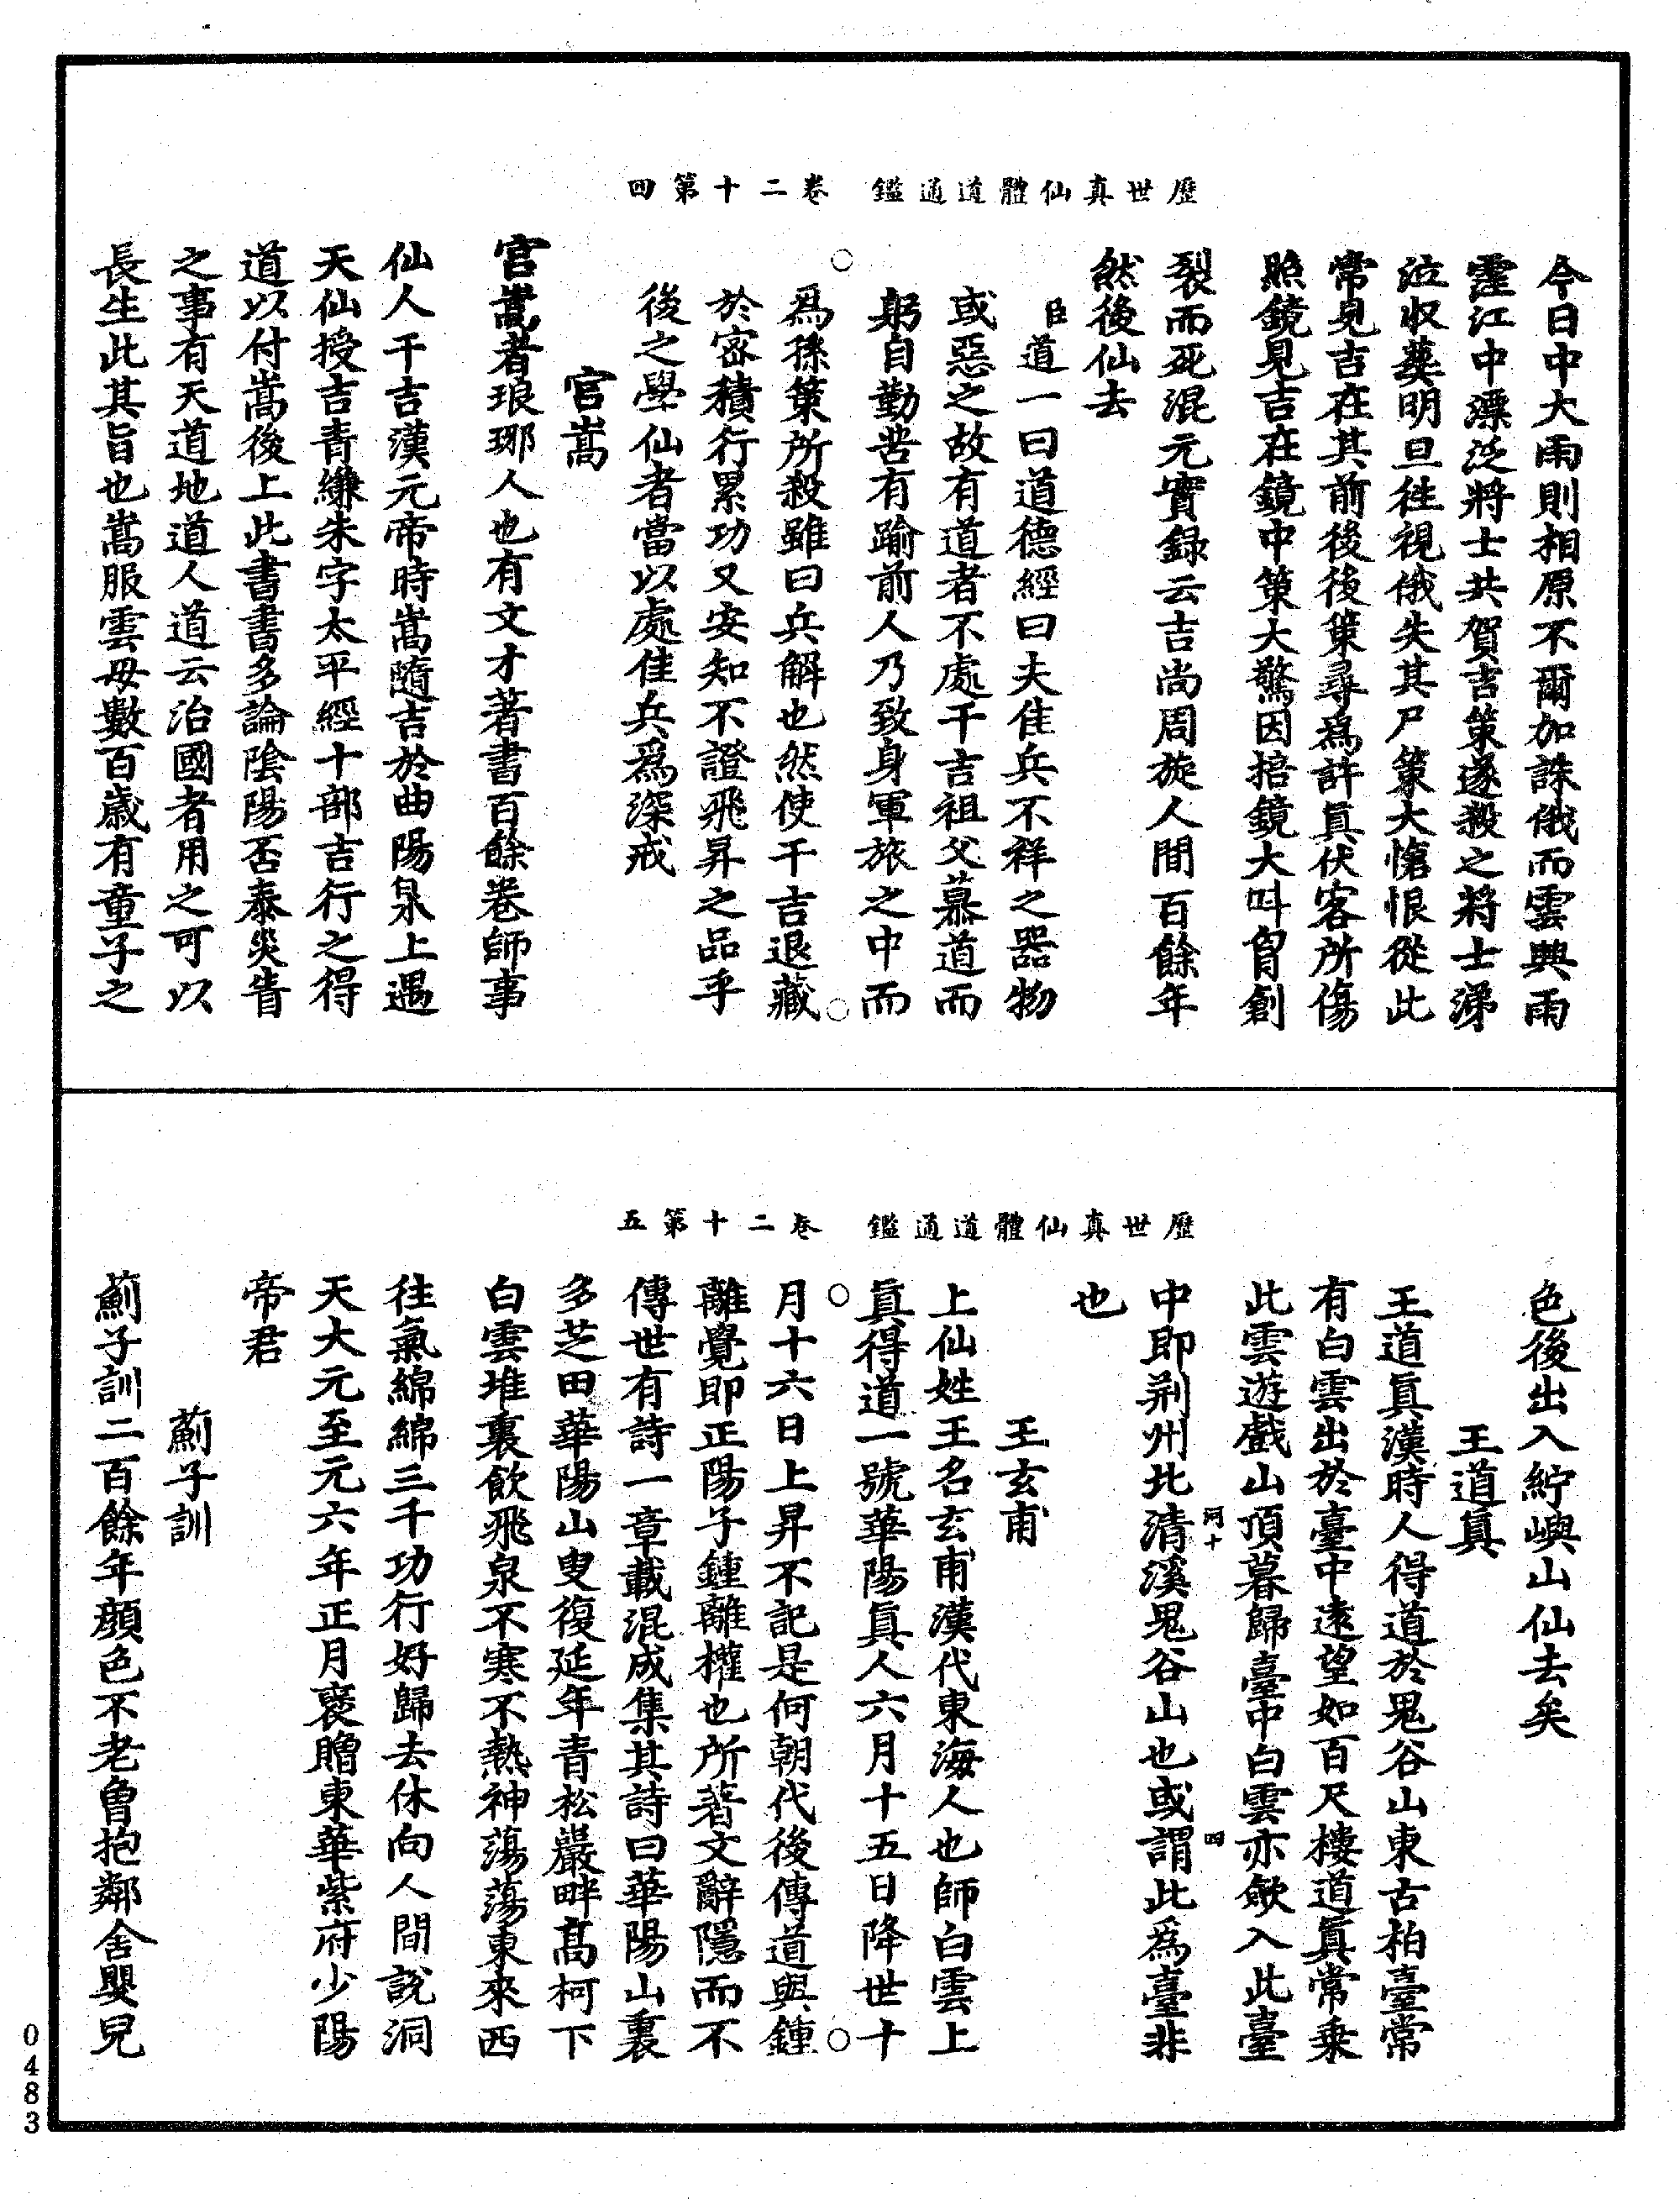 歷世真仙體道通鑑　卷二十第四
今日中大雨則相原不爾加誅俄而雲興雨
霔江中漂泛將士共賀吉策遂殺之將士涕
泣收葬明旦往視俄失其尸策大愴恨從此
常見吉在其前後後策尋為許貢伏客所傷
照鏡見吉在鏡中策大驚因掊鏡大叫胷創
裂而死混元實録云吉尚周旋人間百餘年
然後仙去
臣道一曰道德經曰夫佳兵不祥之器物
或惡之故有道者不處干吉祖父慕道而
躬自勤苦有踰前人乃致身軍旅之中而
為孫策所殺雖曰兵解也然使干吉退藏
於密積行累功又安知不證飛昇之品乎
後之學仙者當以處佳兵為深戒
宫嵩
宫嵩者琅琊人也有文才著書百餘卷師事
仙人干吉漢元帝時嵩隨吉於曲陽泉上遇
天仙授吉青縑朱字太平經十部吉行之得
道以付嵩後上此書書多論陰陽否泰災眚
之事有天道地道人道云治國者用之可以
長生此其旨也嵩服雲母數百歲有童子之
歷世真仙體道通鑑　卷二十第五
色後出入紵嶼山仙去矣
王道真
王道真漢時人得道於鬼谷山東古柏臺常
有白雲出於臺中遠望如百尺樓道真常乗
此雲遊戲山頂暮歸臺中白雲亦歛入此臺
河十　四
中即荆州北清溪鬼谷山也或謂此為臺非
也
王玄甫
上仙姓王名玄甫漢代東海人也師白雲上
真得道一號華陽真人六月十五日降世十
月十六日上昇不記是何朝代後傳道與鍾
離覺即正陽子鍾離權也所著文辭隱而不
傳世有詩一章載混成集其詩曰華陽山裏
多芝田華陽山叟復延年青松巖畔高柯下
白雲堆裏飲飛泉不寒不熱神蕩蕩東來西
往氣綿綿三千功行好歸去休向人間說洞
天大元至元六年正月褒贈東華紫府少陽
帝君
薊子訓
薊子訓二百餘年顔色不老曾抱鄰舍嬰兒
0483